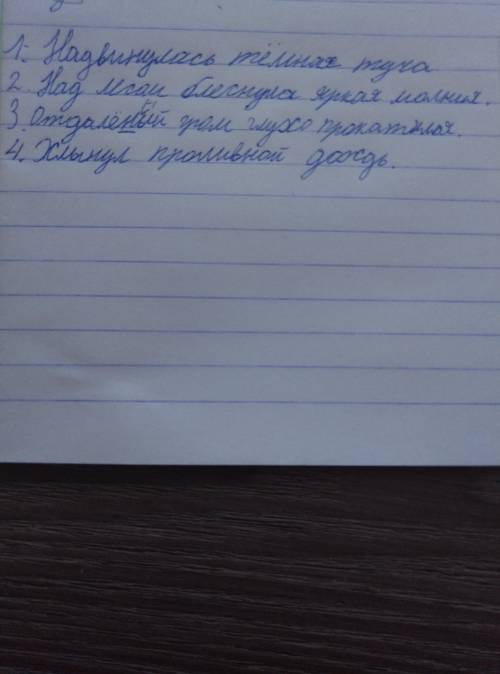 1. Надвинулась тёмная туча
2. Над лесом блеснула яркая молния.
3. Отдалёный гром глухо прокатился.
4. Хлынул проливной дождь.